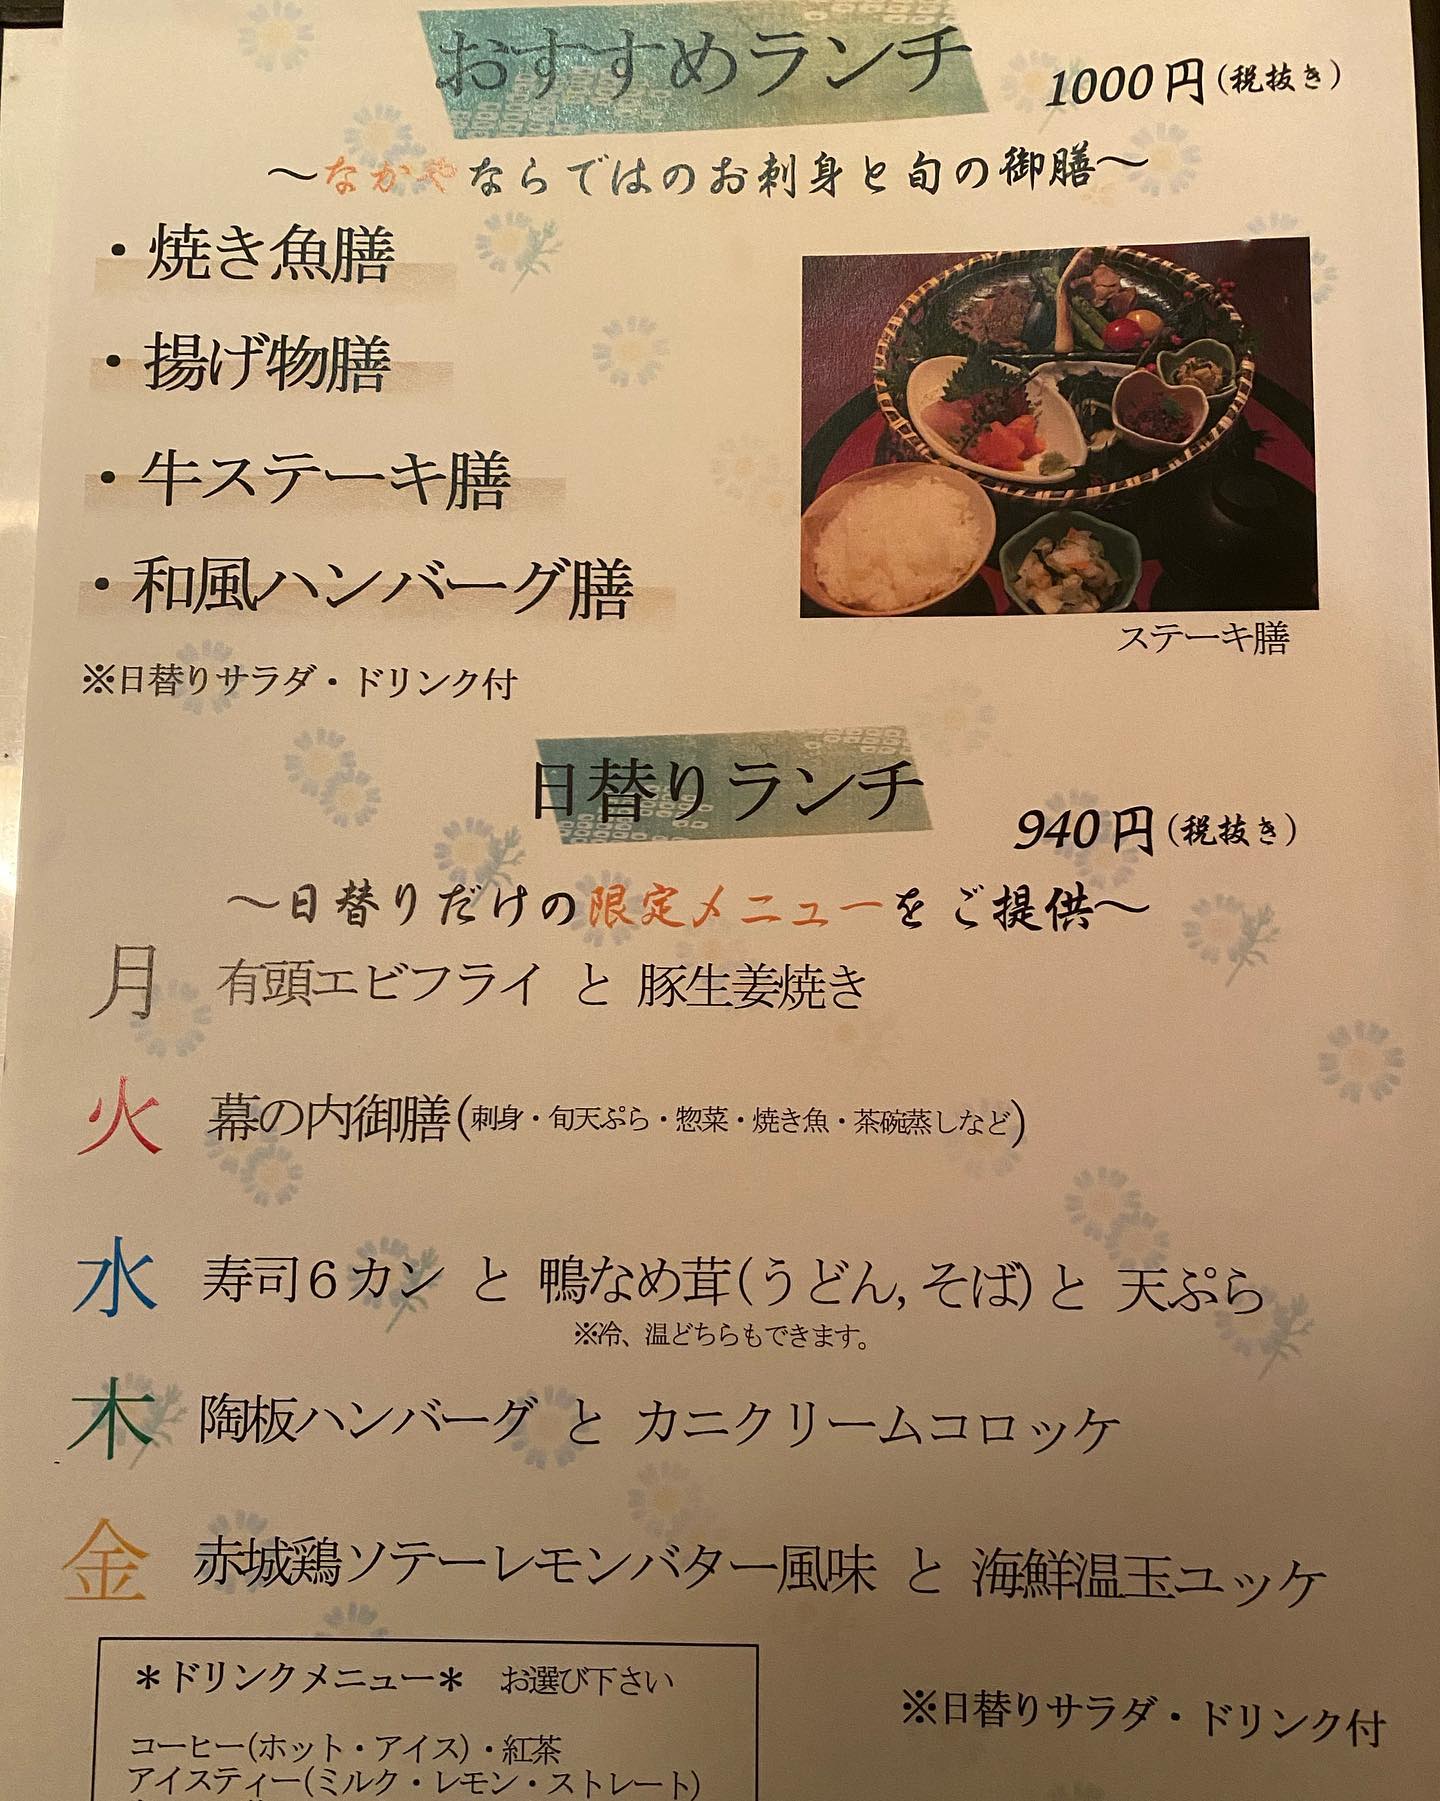 おすすめランチ 1000円(税抜き)
～なかやならではのお刺身と旬の御膳～
・焼き魚膳
・揚げ物膳
・牛ステーキ膳
・和風ハンバーグ膳
ステーキ膳
※日替りサラダ・ドリンク付
日替りランチ 940円(税抜き)
～日替りだけの限定メニューをご提供～
月 有頭エビフライ と 豚生姜焼き
火 幕の内御膳(刺身・旬天ぷら・惣菜・焼き魚・茶碗蒸しなど)
水 寿司6カン と 鴨なめ茸(うどん,そば)と 天ぷら
※冷、温どちらもできます。
木 陶板ハンバーグ と カニクリームコロッケ
金 赤城鶏ソテーレモンバター風味 と 海鮮温玉ユッケ
＊ドリンクメニュー＊ お選び下さい
※日替りサラダ・ドリンク付
コーヒー(ホット・アイス)・紅茶
アイスティー(ミルク・レモン・ストレート)